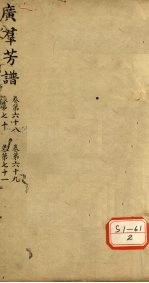 廣羣芳譜
卷第六十八
卷第六十九
卷第七十
卷第七十一
51-61
2